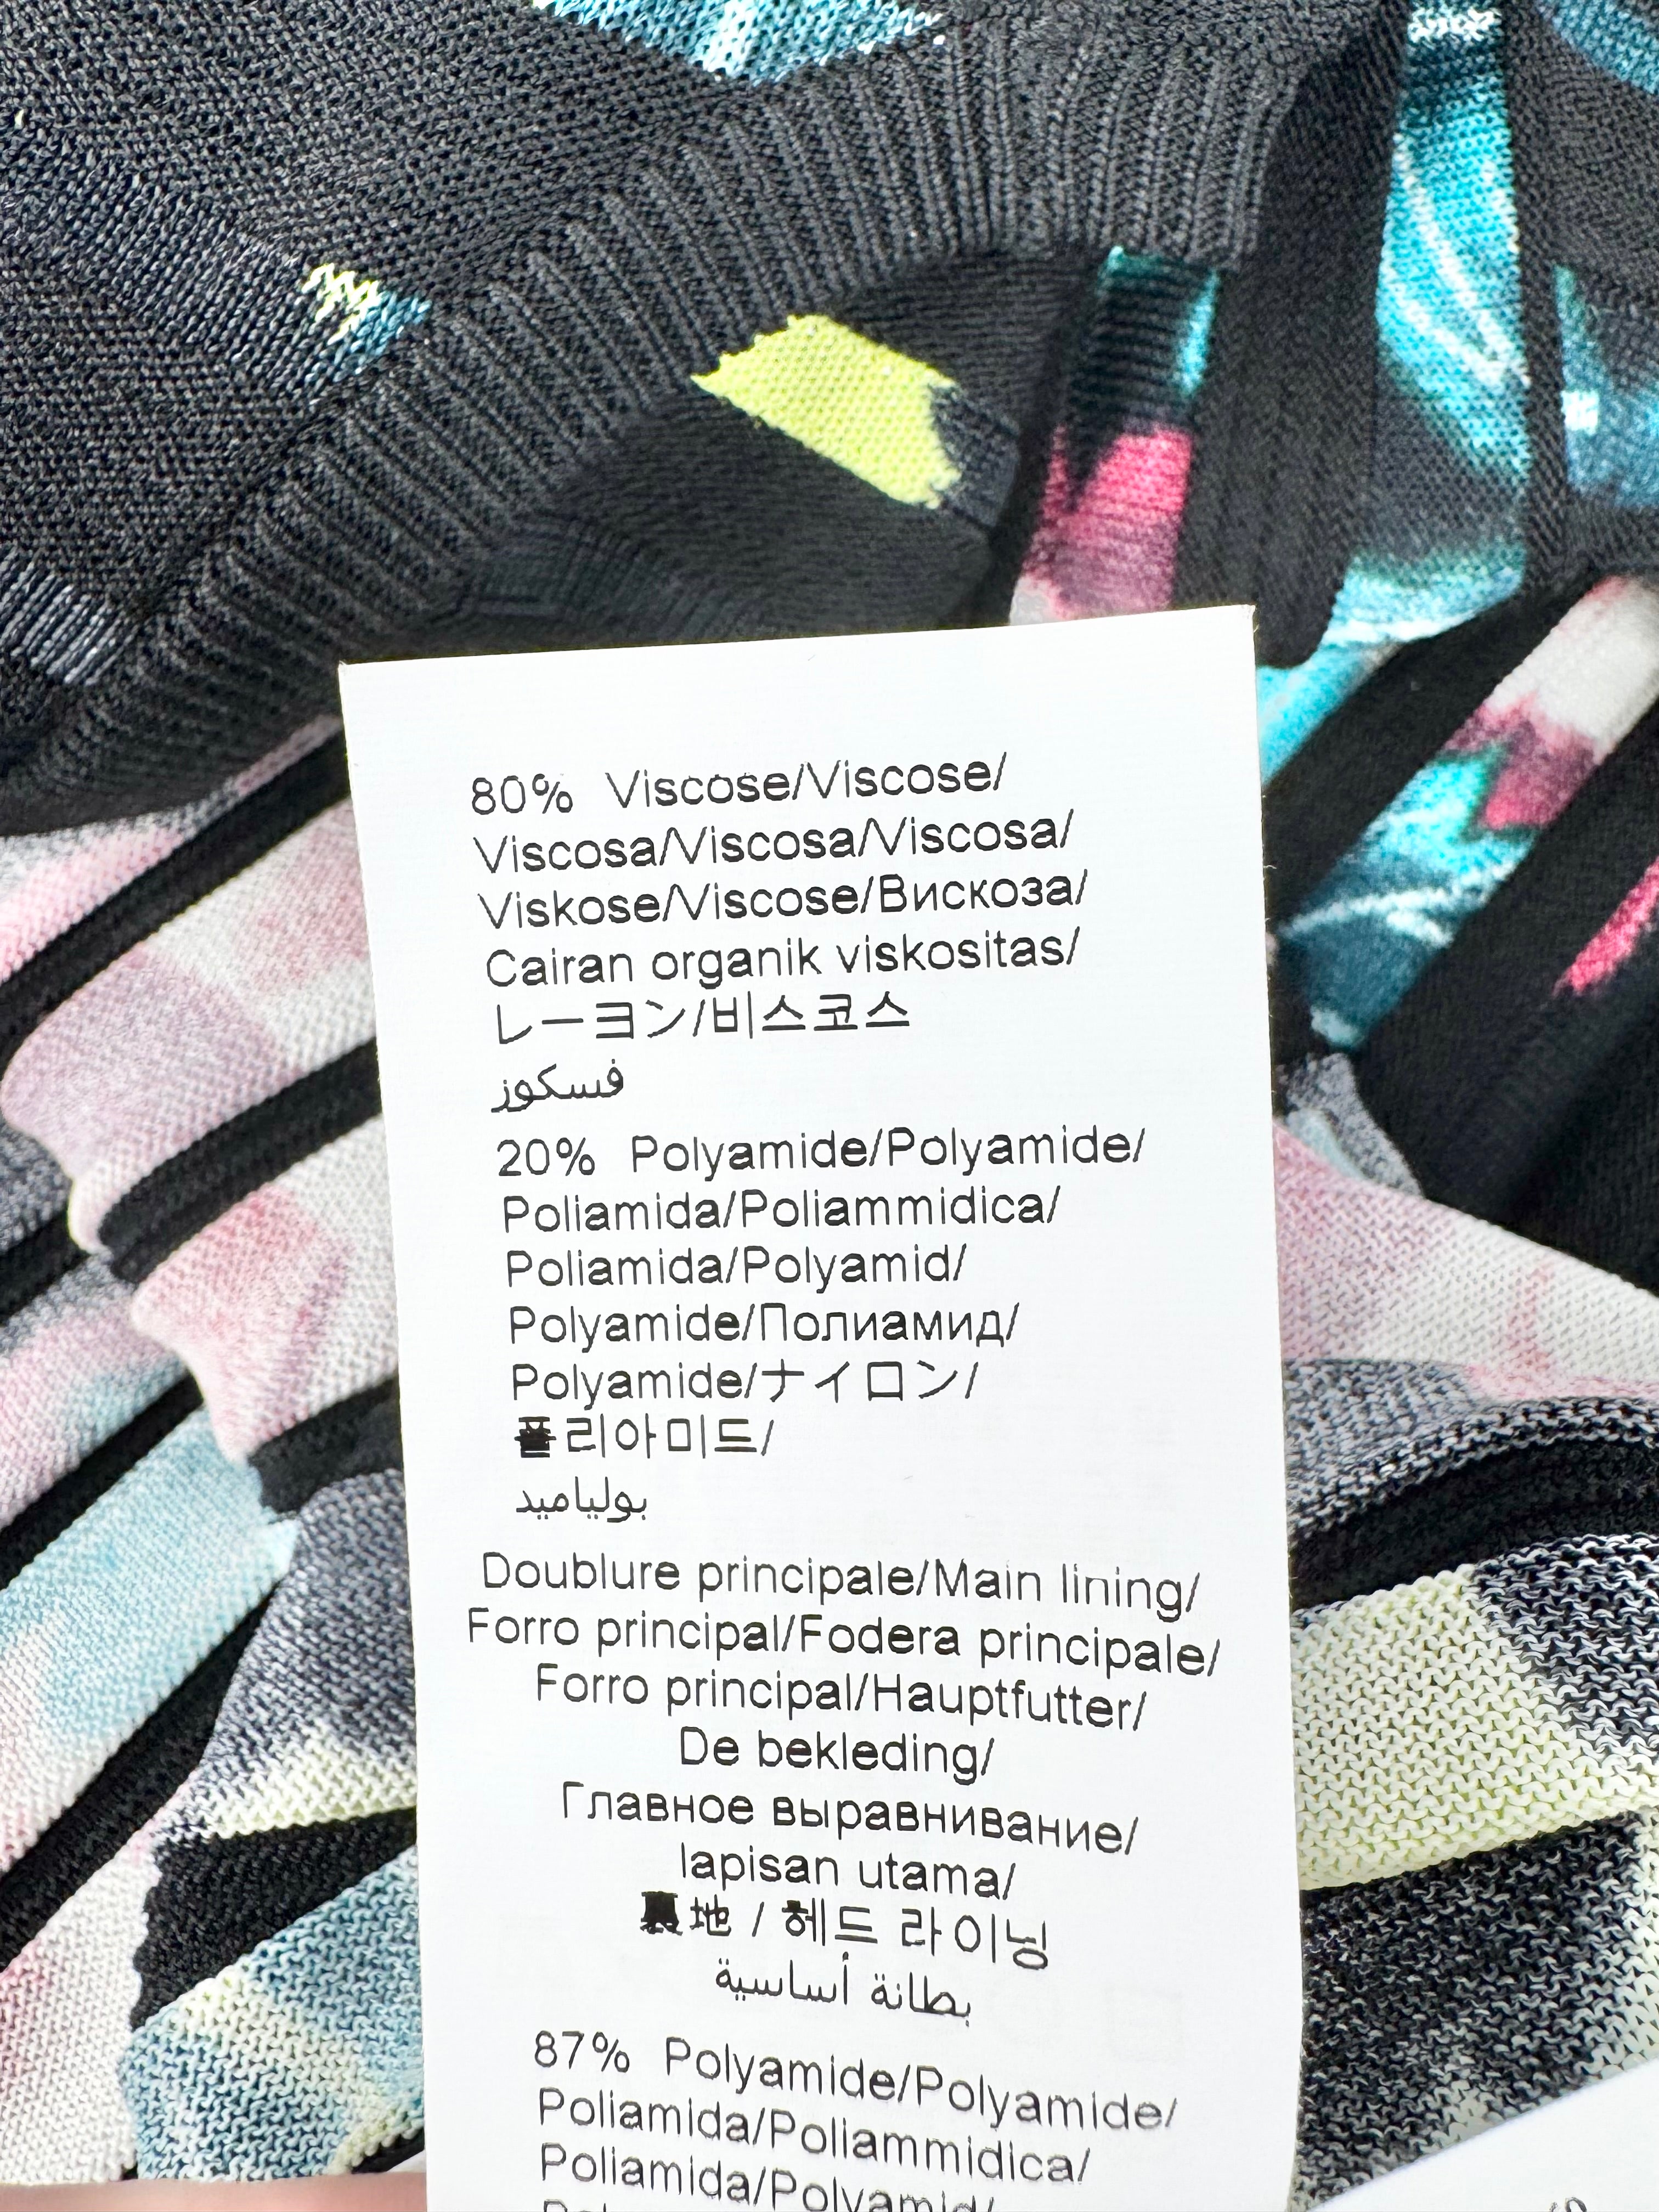 80% Viscose/Viscose/
Viscosa/Viscosa/Viscosa/
Viskose/Viscose/Вискоза/
Cairan organik viskositas/
レーヨン/비스코스
فسكوز
20% Polyamide/Polyamide/
Poliamida/Poliammidica/
Poliamida/Polyamid/
Polyamide/Полиамид/
Polyamide/ナイロン/
폴리아미드/
بولياميد
Doublure principale/Main lining/
Forro principal/Fodera principale/
Forro principal/Hauptfutter/
De bekleding/
Главное выравнивание/
lapisan utama/
裏地 / 헤드 라이닝
بطانة أساسية
87% Polyamide/Polyamide/
Poliamida/Poliammidica/
Poliamida/Polyamid/